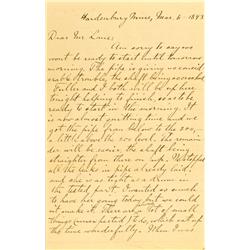 Hardenburg Mine, Mar. 6 - 1893
Dear Mr. Lane,
Am sorry to say we
won't be ready to start until tomorrow
morning. The pipe is giving us consid-
erable trouble, the shaft being so crooked
Fuller and I both will be up here
tonight helping to finish, so as to be
ready to start in the morning. It
is now almost quitting time and we
got the pipe from below to the 200,
a little above the 200 level. The remain-
der will be easier, the shaft being
straighter from there on up. We stopped
all the leaks in pipe already laid,
and was as tight as a drum on
the tested part. I wanted so much
to have her going today but we could
not make it. There are a lot of small
things unexpected to do, which eat up
the time wonderfully. When I was